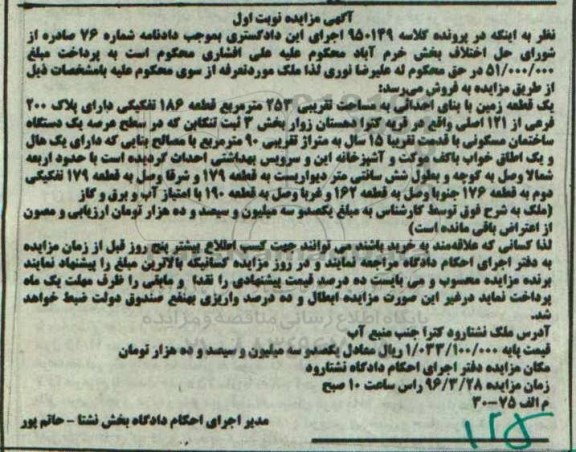 آگهی مزایده نوبت اول
نظر به اینکه در پرونده کلاسه ۹۵۰۱۴۹ اجرای این دادگستری بموجب دادنامه شماره ۷۶ صادره از
شورای حل اختلاف بخش خرم آباد محکوم علیه علی افشاری محکوم است به پرداخت مبلغ
۵۱/۰۰۰/۰۰۰ در حق محکوم له علیرضا نوری لذا ملک موردتعرفه از سوی محکوم علیه بامشخصات ذیل
از طریق مزایده به فروش می‌رسد:
یک قطعه زمین با بنای احداثی به مساحت تقریبی ۲۵۳ مترمربع قطعه ۱۸۶ تفکیکی دارای پلاک ۲۰۰
فرعی از ۱۲۱ اصلی واقع در قریه کترا دهستان زوار بخش ۳ ثبت تنکابن که در سطح عرصه یک دستگاه
ساختمان مسکونی با قدمت تقریبا ۱۵ سال به متراژ تقریبی ۹۰ مترمربع با مصالح بنایی که دارای یک هال
و یک اطاق خواب باکف موکت و آشپزخانه اپن و سرویس بهداشتی احداث گردیده است با حدود اربعه
شمالا وصل به کوچه و بطول شش سانتی متر دیواریست به قطعه ۱۷۹ و شرقا وصل به قطعه ۱۷۹ تفکیکی
دوم به قطعه ۱۷۶ جنوبا وصل به قطعه ۱۶۲ و غربا وصل به قطعه ۱۹۰ با امتیاز آب و برق و گاز
(ملک به شرح فوق توسط کارشناس به مبلغ یکصدو سه میلیون و سیصد و ده هزار تومان ارزیابی و مصون
از اعتراض باقی مانده است)
لذا کسانی که علاقه‌مند به خرید باشند می توانند جهت کسب اطلاع بیشتر پنج روز قبل از زمان مزایده
به دفتر اجرای احکام دادگاه مراجعه نمایند و در روز مزایده کسانیکه بالاترین مبلغ را پیشنهاد نمایند
برنده مزایده محسوب و می بایست ده درصد قیمت پیشنهادی را نقدا و مابقی را ظرف مهلت یک ماه
پرداخت نماید درغیر این صورت مزایده ابطال و ده درصد واریزی بهنفع صندوق دولت ضبط خواهد
شد.
آدرس ملک نشتارود کترا جنب منبع آب
قیمت پایه ۱/۰۳۳/۱۰۰/۰۰۰ ریال معادل یکصدو سه میلیون و سیصد و ده هزار تومان
مکان مزایده دفتر اجرای احکام دادگاه نشتارود
زمان مزایده ۹۶/۳/۲۸ راس ساعت ۱۰ صبح
م الف ۷۵-۳۰
مدیر اجرای احکام دادگاه بخش نشتا - حاتم پور